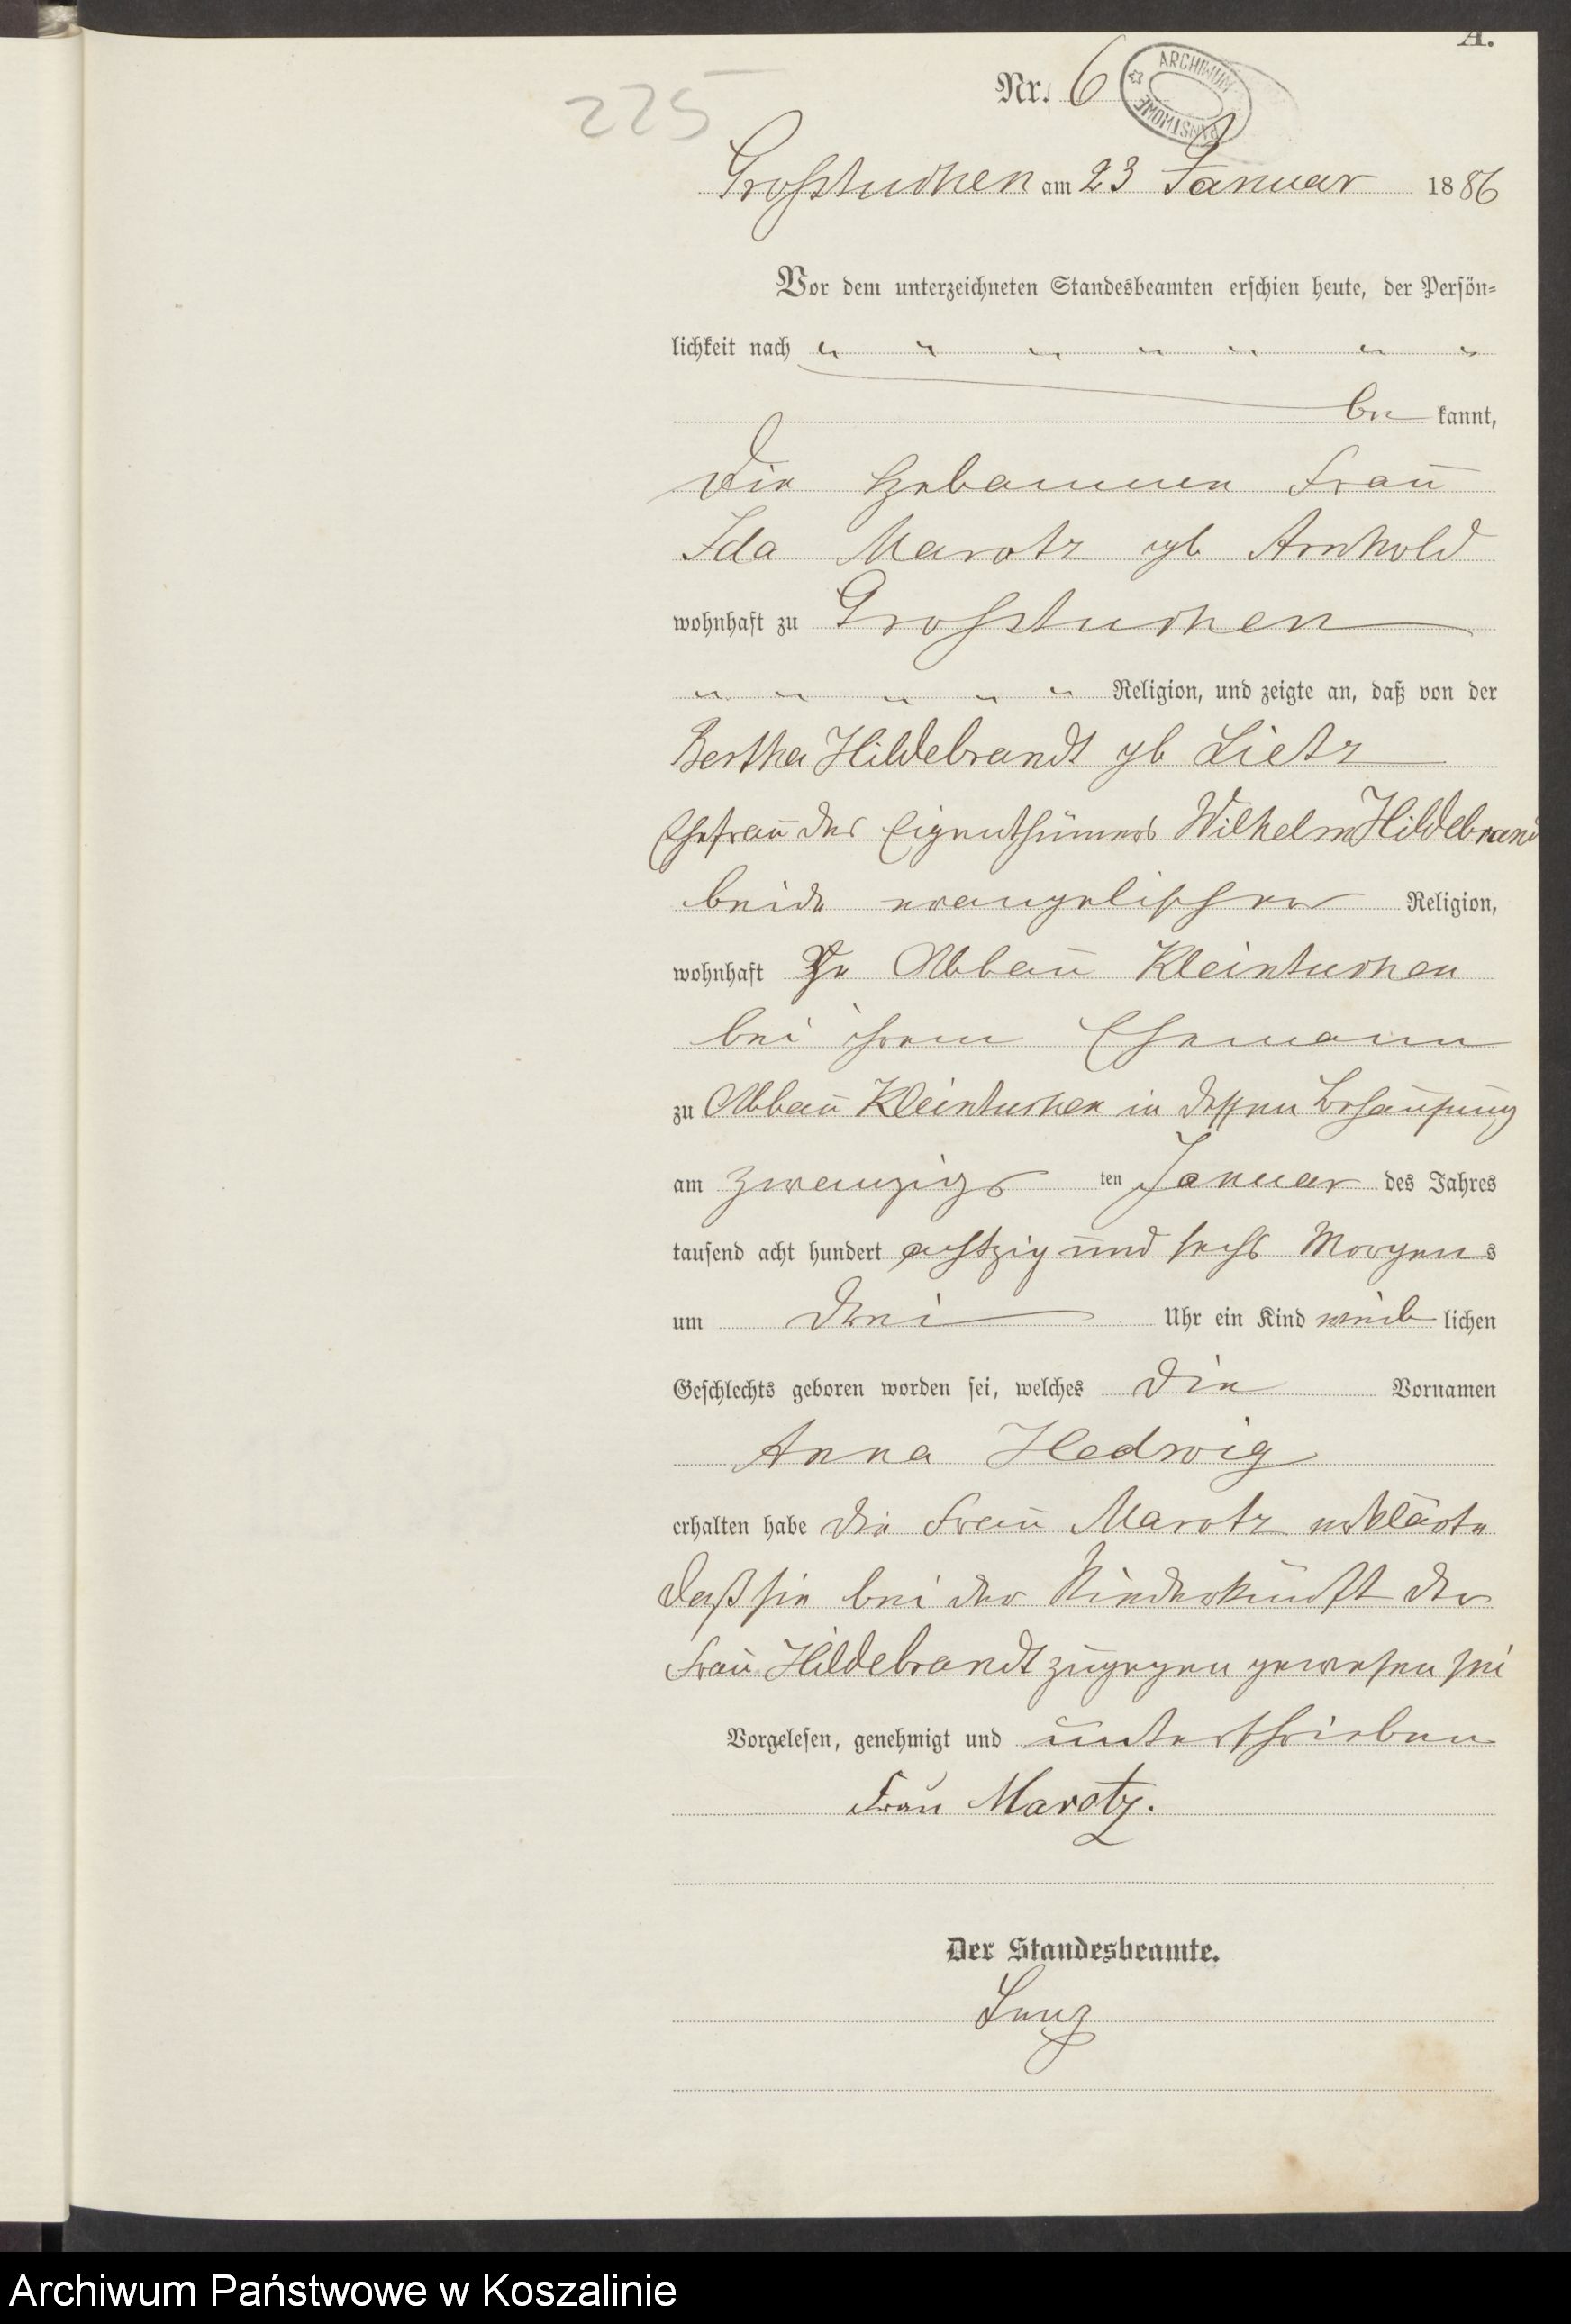 A.
225
Nr. 6
ARCHIWUM PAŃSTWOWE
Grosstuchen am 23 Januar 1886
Vor dem unterzeichneten Standesbeamten erschien heute, der Persön-
lichkeit nach " " " " " " "
be kannt,
die Hebamme Frau
Ida Marotz geb Arnhold
wohnhaft zu Grosstuchen
" " " " " Religion, und zeigte an, daß von der
Bertha Hildebrandt gb Lietz
Ehefrau des Eigenthümers Wilhelm Hildebrand
beide evangelischer Religion,
wohnhaft zu Abbau Kleintuchen
bei ihrem Ehemann
zu Abbau Kleintuchen in dessen Behausung
am zwanzigs ten Januar des Jahres
tausend acht hundert achtzig und sechs Morgens
um drei Uhr ein Kind weib lichen
Geschlechts geboren worden sei, welches die Vornamen
Anna Hedwig
erhalten habe die Frau Marotz erklärte
daß sie bei der Niederkunft der
Frau Hildebrandt zugegen gewesen sei
Vorgelesen, genehmigt und unterschrieben
Frau Marotz.
Der Standesbeamte.
Lenz
Archiwum Państwowe w Koszalinie